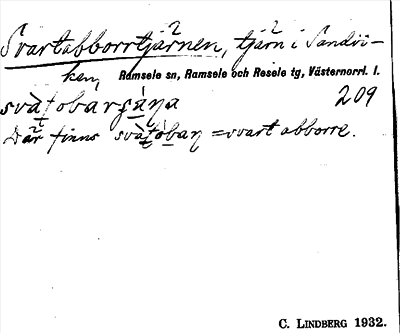 Svartabborrtjärnen, tjärn i Sandvi-
ken,
Ramsele sn, Ramsele och Resele tg, Västernorrl. l.
209
Där finns = svart abborre.
C. LINDBERG 1932.